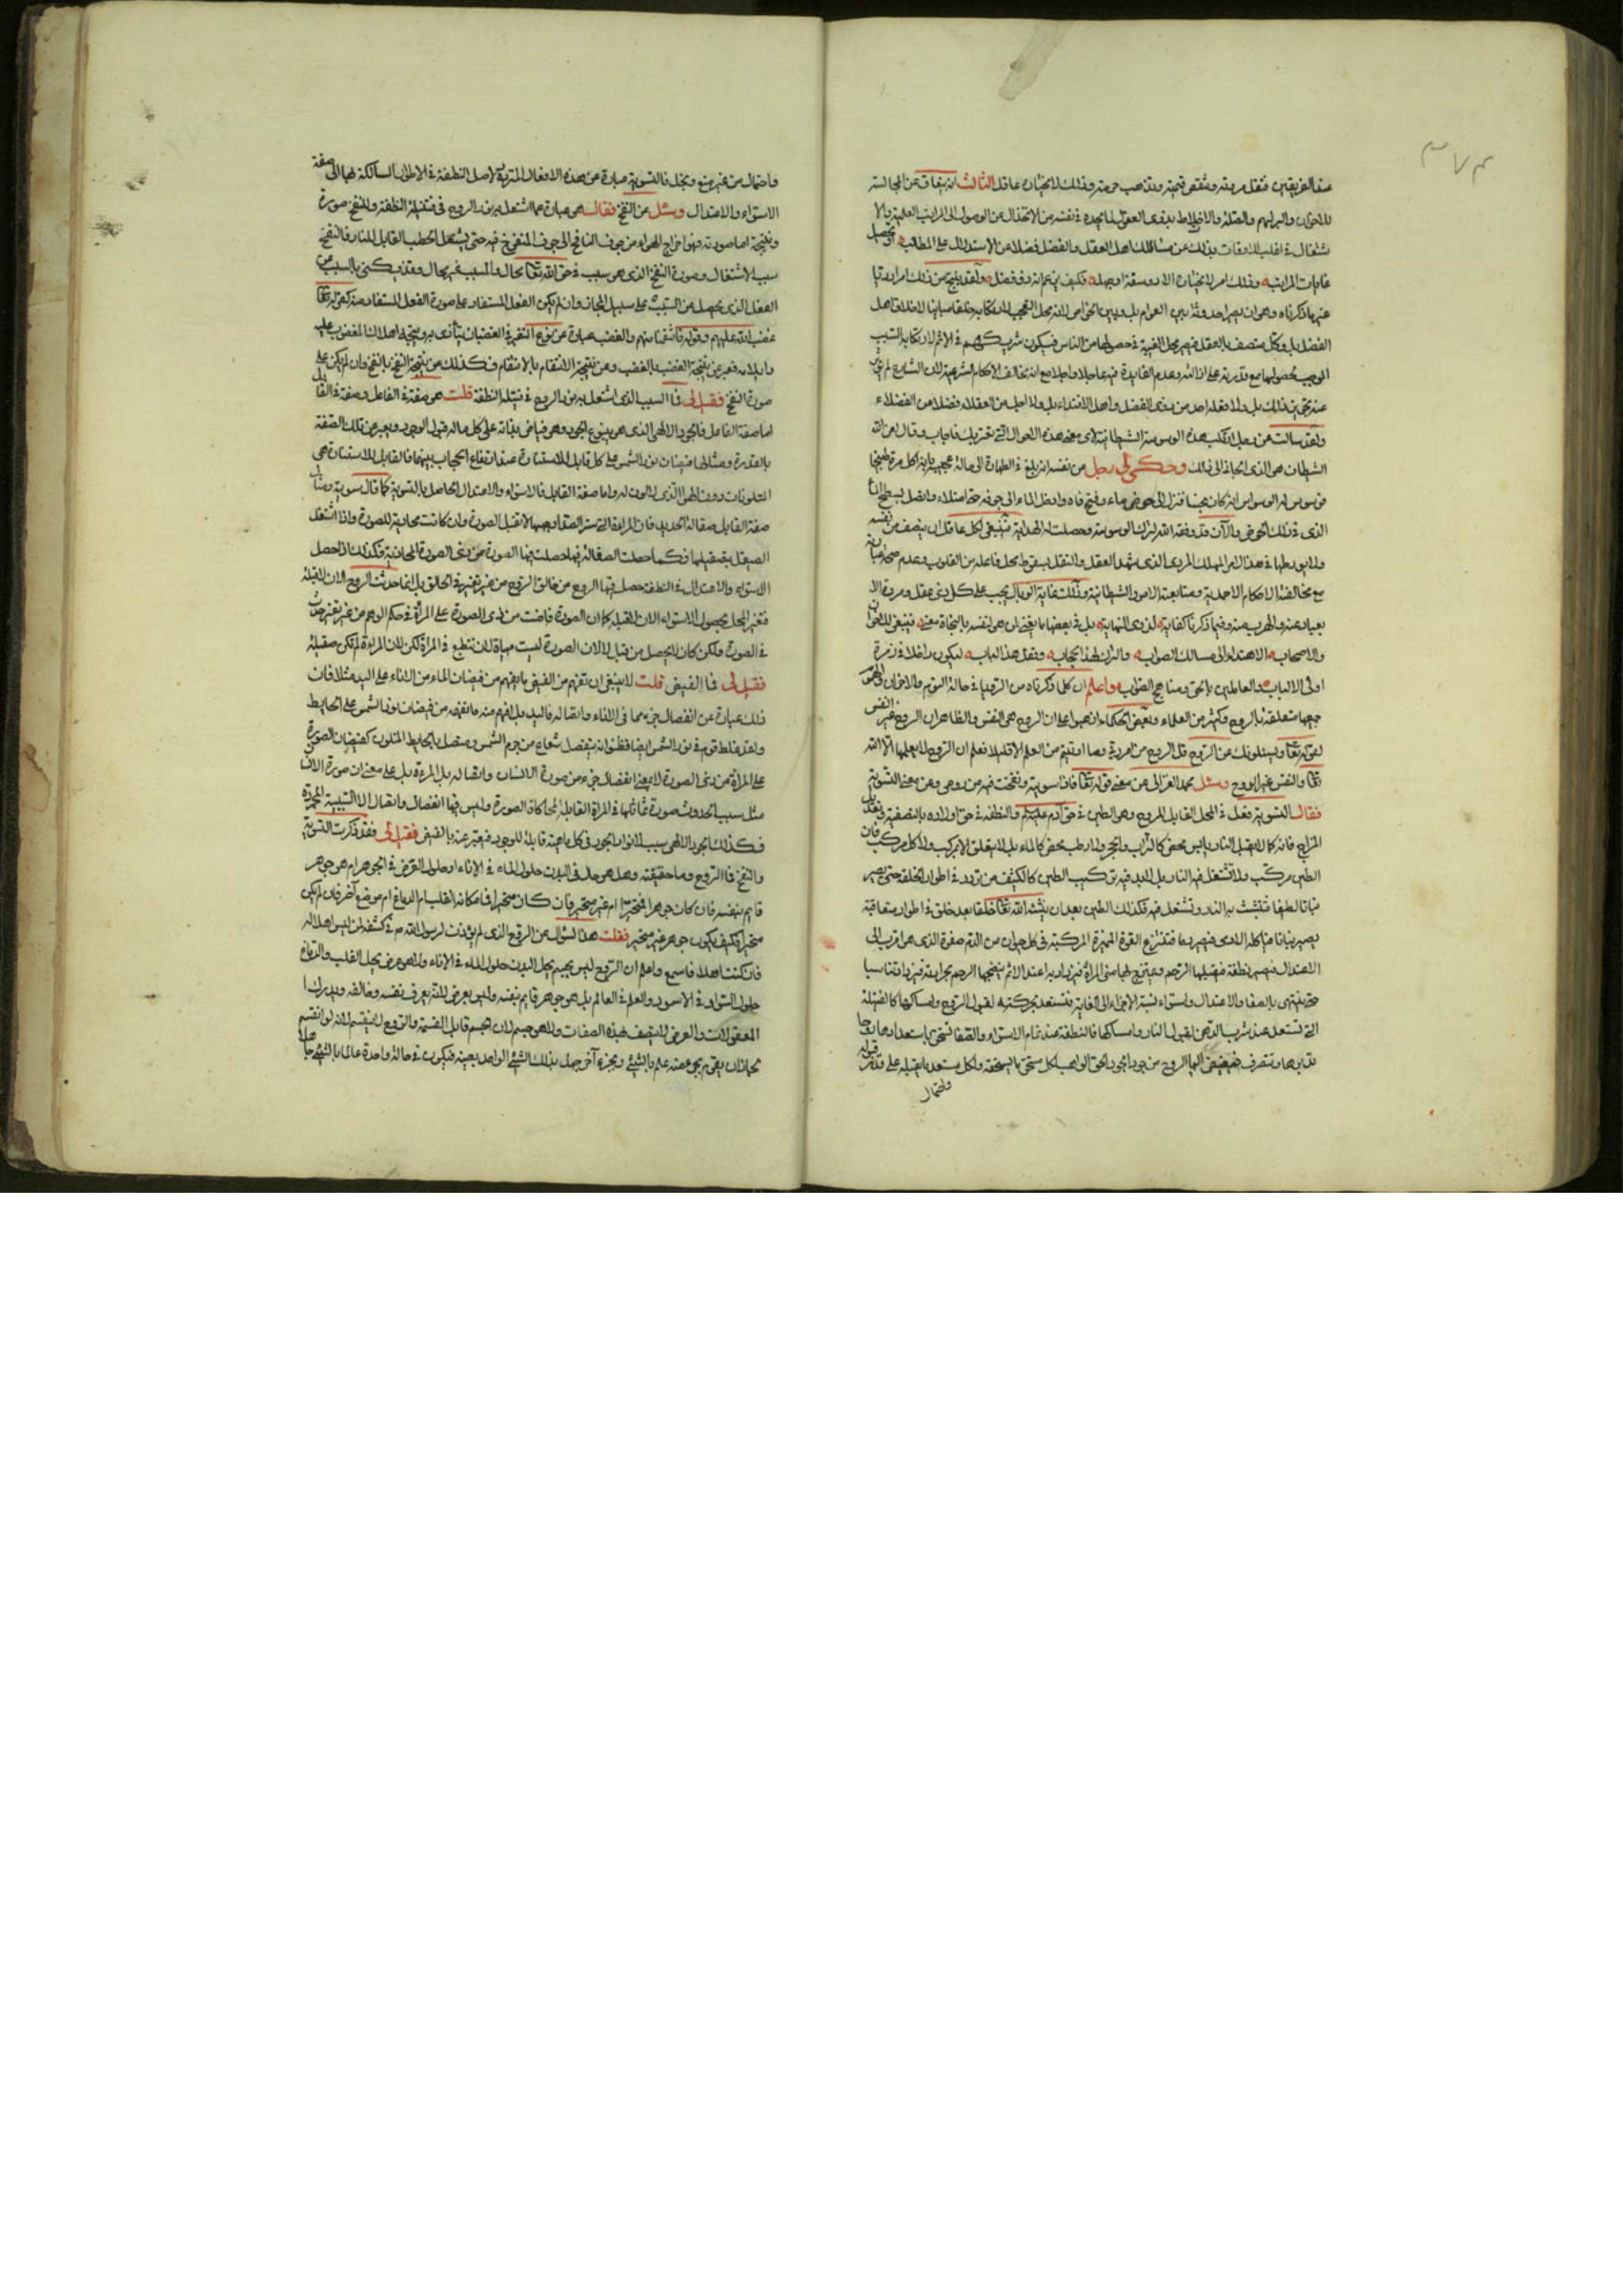 ٣٧٣
عند الفريقين فتقل مروته وتنقص قيمته وتذهب حرمته وذلك لا يختاره عاقل الثالث انه يعاق عن المجالسة
للاخوان
شتغال في اغلب الاوقات بذلك عن مسالك اهل العقل والفضل فضلا عن الاستدلال على المطالب
غايات المراتب وذلك امر لا يختاره الا ذو سفه او جهله فكيف يزعم انه ذو فضل
الفضل بل وكل متصف بالعقل فيصير محل الغيبة في حضوره من الناس فيكون شريكهم في الاثم لارتكابه السبب
الموجب لحصولها مع قدرته على ازالته وعدم الفايدة فيه عاجلا واجلا مع انه مخالف للاحكام الشرعية لان الشارع لم
عنه بل ولا فعله احد من ذوى الفضل واهل الاقتداء بل ولا احد من العقلاء فضلا من الفضلاء
ولقد سالت عن رجل ارتكب هذه الوسوسة الشيطانية عن معنى هذه الاحوال التي تعتريك فاجاب وقال ان
الشيطان هو الذى الجاني الى ذلك وحكى لى رجل من نفسه انه بلغ في الطهارة الى حالة عجيبة
من وسوسه الوسواس انه كان يجئ فنزل الى حوض ماء وفتح فاه وادخل الماء الى جوفه حتى امتلاء واتصل بسطح الماء
الذى في ذلك الحوض والآن قد وفقه الله لترك الوسوسة وحصلت له الهداية فينبغى لكل عاقل ان ينصف من نفسه
ولا يوردها في هذا الامر المهلك المردى الذى شهد العقل والنقل بسقوط محل فاعله من القلوب وعدم صحة عبادته
مع مخالفته الاحكام الاحمدية ومتابعته الامور الشيطانية وتلك غاية الوبال يجب على كل ذي عقل ومروة الا
بعاد عنه والهرب منه وفيما ذكرنا كفاية لذوى النهاية بل في بعضها ما يغنى ان هم لنفسه بالنجاة معنى فينبغى للاخوان
والاصحاب الاهتداء الى مسالك الصواب والترك لهذا الحجاب وقفل هذا الباب ليكون داخلا في زمرة
اولى الالباب والعاملين بالحق ومناهج الصواب واعلم ان كلما ذكرناه من الرؤيا في حالة النوم والاخوان
جميعها متعلقة بالروح وكثير من العلماء وبعض الحكماء ذهبوا على ان الروح هى النفس والظاهر ان الروح غير النفس
لقوله تعالى ويسئلونك عن الروح قل الروح من امر ربي وما اوتيتم من العلم الا قليلا فعلم ان الروح لا يعلمها الا الله
تعالى والنفس غير الروح وسئل محمد الغزالى عن معنى قوله تعالى فاذا سويته ونفخت فيه من روحى وعن معنى التسوية
فقال التسوية فعل في المحل القابل للروح وهو الطين في حق آدم عليه السلام والنطفة في حق اولاده بالتصفية وتعديل
المزاج فانه كما لا يقبل النار يابس محض كالتراب والحجر ولا رطب محض كالماء بل لا يتعلق الا بمركب ولا كل مركب فان
الطين مركب ولا تشتعل فيه النار بل لابد فيه من تركيب الطين الكثيف من تردد في اطوار الخلقة حتى يصير
نباتا لطيفا فتثبت به النار وتشتعل فيه فكذلك الطين بعد ان ينشئه الله تعالى خلقا بعد خلق في اطوار متعاقبة
يصير نباتا فياكله الادمى فيصير دما فتنتزع القوة المميزة المركبة في كل حيوان من الدم صفوة الذى هو اقرب الى
الاعتدال فيصير نطفة فيقبلها الرحم ويمتزج بها منى المراة فيزداد به اعتدالا ثم ينضجها الرحم بحرارته فيزداد تناسبا
حتى ينتهى بالصفا والاعتدال واستواء نسبة الاجزاء الى الغاية فتستعد لقبول الروح وامساكها كالفتيلة
التى تستعد عند شرب الدهن لقبول النار وامساكها فالنطفة عند تمام الاستواء والصفا تستحق باستعدادها روحا
تدبرها وتتصرف فيها فيفيض اليها الروح من جود الجواد الحق الواهب لكل مستحق ما يستحقه ولكل مستعد ما يقبله على قدر قبوله
واحتمال
واحتماله من غير منع وبخل فالتسوية عبارة عن هذه الافعال المترددة لاصل النطفة في الاطوار السالكة بها الى صفة
الاستواء والاعتدال وسئل عن النفخ فقال هو عبارة عما اشتعل به نور الروح في فتيلة النطفة وللنفخ صورة
ونتيجة اما صورته فهو اخراج الهواء من جوف النافخ الى جوف المنفوخ فيه حتى يشتعل الحطب القابل للنار فالنفخ
سبب الاشتعال وصورة النفخ الذى هو سبب في حق الله تعالى محال والمسبب غير محال وقد يكنى بالسبب عن
الفعل الذى يحصل من السبب على سبيل المجاز وان لم يكن الفعل المستفاد على صورة الفعل المستفاد منه كقوله تعالى
غضب الله عليهم وقوله فانتقمنا منهم والغضب عبارة عن نوع التغير في الغضبان يتأذى به ونتيجته اهلاك المغضوب عليه
وايلامه فعبر عن نتيجة الغضب بالغضب وعن نتيجة الانتقام بالانتقام وكذلك عن نتيجة النفخ بالنفخ وان لم يكن على
صورة النفخ فقيل لى فما السبب الذى اشتعل به نور الروح في فتيلة النطفة قلت هو صفة في الفاعل وصفة في القابل
اما صفة الفاعل فالجود الالهى الذى هو ينبوع الوجود وهو فياض بذاته على كل ماله قبول الوجود ويعبر عن تلك الصفة
بالقدرة ومثالها فيضان نور الشمس على كل قابل للاستنارة عند ارتفاع الحجاب بينهما فالقابل للاستنارة هى
المتلونات دون الهوا الذى لا لون له واما صفة القابل فالاستواء والاعتدال الحاصل بالتسوية كما قال سويته ومثال
صفة القابل صقالة الحديد فان المراة التى ستر الصدا وجهها لا تقبل الصورة وان كانت محاذية للصورة واذا اشتغل
الصيقل بتصقيلها فكما حصلت الصقالة فيها حصلت فيها الصورة من ذى الصورة المحاذية فكذلك اذا حصل
الاستواء والاعتدال في النطفة حصل فيها الروح من خالق الروح من غير تغير في الخالق بل انما حدث الروح الان لا قبله
فتغير المحل بحصول الاستواء الان لا قبله كما ان الصورة فاضت من ذى الصورة على المراة في حكم الوهم من غير تغير حدث
في الصورة ولكن كان لا يحصل من قبل لا لان الصورة ليست مهياة لان تنطبع في المراة لكن لان المراة لم تكن صقيلة
فقيل لى فما الفيض قلت لا ينبغى ان تفهم من الفيض ما يفهم من فيضان الماء من الاناء على اليد مثلا فان
ذلك عبارة عن انفصال جزء مما في الاناء واتصاله باليد بل افهم منه ما تفهم من فيضان نور الشمس على الحايط
ولقد غلط قوم في نور الشمس ايضا فظنوا انه ينفصل شعاع من جرم الشمس ومتصل بالحايط المتلون كفيضان الصورة
على المراة من ذى الصورة لا بمعنى انفصال جزء من صورة الانسان واتصاله بل المراة بل على معنى ان صورة الانسان
مثل سبب لحدوث صورة تماثلها في المراة القابلة لمحاكاة الصورة وليس فيها انفصال واتصال الا السببية المجردة
فكذلك الجود الالهى سبب لانوار الوجود في كل ماهية قابلة للوجود فيعبر عنه بالفيض فقيل لى فقد ذكرت التسوية
والنفخ فما الروح وما حقيقته وهل هو حل في البدن حلول الماء في الاناء او حلول العرض في الجوهر ام هو جوهر
قايم بنفسه فان كان جوهرا فمتحيز ام غير متحيز فان كان متحيزا فما مكانه القلب ام الدماغ ام موضع آخر فان لم يكن
متحيزا فكيف يكون جوهر غير متحيز فقلت هذا السؤال عن الروح الذى لم يؤذن لرسول الله ص في كشفه لمن ليس اهلا له
فان كنت اهلا فاسمع واعلم ان الروح ليس بجسم يحل البدن حلول الماء في الاناء ولا هو عرض يحل القلب والدماغ
حلول السواد في الاسود والعلم في العالم بل هو جوهر قايم بنفسه وليس بعرض لانه يعرف نفسه وخالقه ويدرك
المعقولات والعرض لا يتصف بهذه الصفات ولا هو جسم لان الجسم قابل القسمة والروح لا ينقسم لانه لو انقسم
لجاز ان يقوم بجزء منه علم بالشئ وبجزء آخر جهل بذلك الشئ الواحد بعينه فيكون في حالة واحدة عالما بالشئ جاهلا